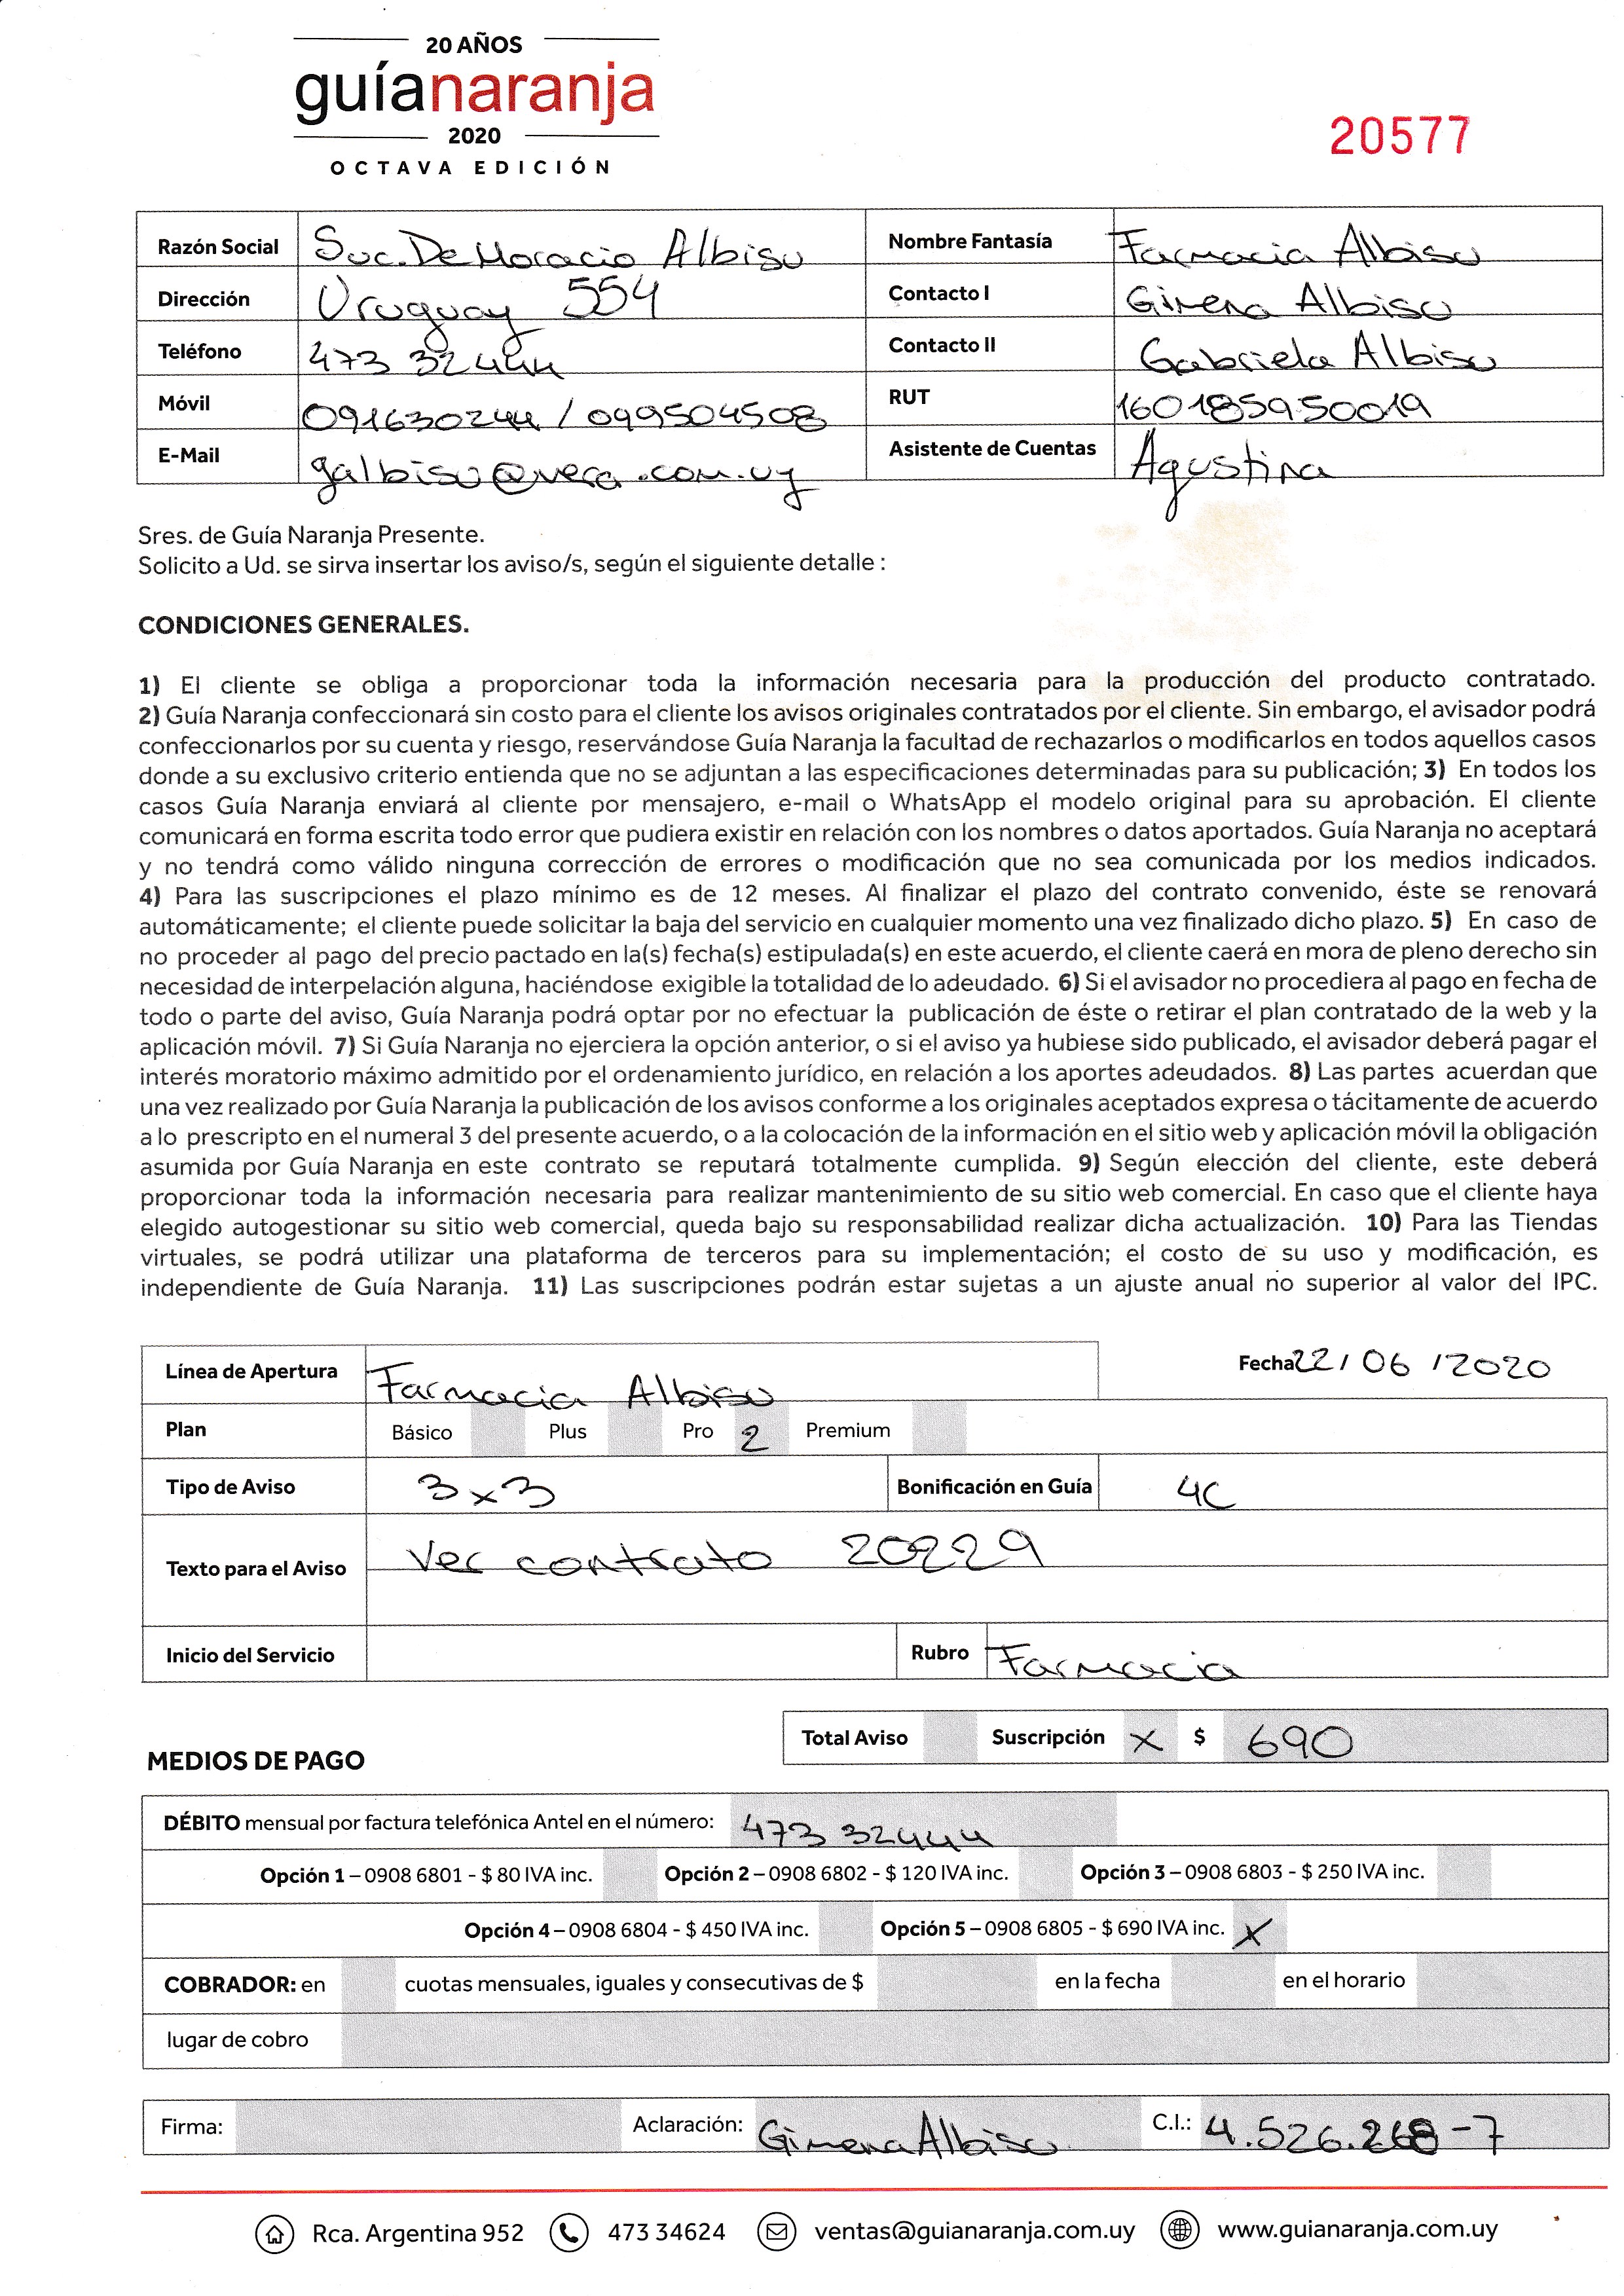 20 AÑOS
guíanaranja
2020
OCTAVA EDICIÓN
20577
Razón Social Suc. De Horacio Albisu Nombre Fantasía Farmacia Albisu
Dirección Uruguay 554 Contacto I Gimena Albisu
Teléfono 473 32444 Contacto II Gabriela Albisu
Móvil 091630244 / 099504508 RUT 160185950019
E-Mail galbisu@vera.com.uy Asistente de Cuentas Agustina
Sres. de Guía Naranja Presente.
Solicito a Ud. se sirva insertar los aviso/s, según el siguiente detalle :
CONDICIONES GENERALES.
1) El cliente se obliga a proporcionar toda la información necesaria para la producción del producto contratado.
2) Guía Naranja confeccionará sin costo para el cliente los avisos originales contratados por el cliente. Sin embargo, el avisador podrá
confeccionarlos por su cuenta y riesgo, reservándose Guía Naranja la facultad de rechazarlos o modificarlos en todos aquellos casos
donde a su exclusivo criterio entienda que no se adjuntan a las especificaciones determinadas para su publicación; 3) En todos los
casos Guía Naranja enviará al cliente por mensajero, e-mail o WhatsApp el modelo original para su aprobación. El cliente
comunicará en forma escrita todo error que pudiera existir en relación con los nombres o datos aportados. Guía Naranja no aceptará
y no tendrá como válido ninguna corrección de errores o modificación que no sea comunicada por los medios indicados.
4) Para las suscripciones el plazo mínimo es de 12 meses. Al finalizar el plazo del contrato convenido, éste se renovará
automáticamente; el cliente puede solicitar la baja del servicio en cualquier momento una vez finalizado dicho plazo. 5) En caso de
no proceder al pago del precio pactado en la(s) fecha(s) estipulada(s) en este acuerdo, el cliente caerá en mora de pleno derecho sin
necesidad de interpelación alguna, haciéndose exigible la totalidad de lo adeudado. 6) Si el avisador no procediera al pago en fecha de
todo o parte del aviso, Guía Naranja podrá optar por no efectuar la publicación de éste o retirar el plan contratado de la web y la
aplicación móvil. 7) Si Guía Naranja no ejerciera la opción anterior, o si el aviso ya hubiese sido publicado, el avisador deberá pagar el
interés moratorio máximo admitido por el ordenamiento jurídico, en relación a los aportes adeudados. 8) Las partes acuerdan que
una vez realizado por Guía Naranja la publicación de los avisos conforme a los originales aceptados expresa o tácitamente de acuerdo
a lo prescripto en el numeral 3 del presente acuerdo, o a la colocación de la información en el sitio web y aplicación móvil la obligación
asumida por Guía Naranja en este contrato se reputará totalmente cumplida. 9) Según elección del cliente, este deberá
proporcionar toda la información necesaria para realizar mantenimiento de su sitio web comercial. En caso que el cliente haya
elegido autogestionar su sitio web comercial, queda bajo su responsabilidad realizar dicha actualización. 10) Para las Tiendas
virtuales, se podrá utilizar una plataforma de terceros para su implementación; el costo de su uso y modificación, es
independiente de Guía Naranja. 11) Las suscripciones podrán estar sujetas a un ajuste anual no superior al valor del IPC.
Línea de Apertura Farmacia Albisu Fecha 22/ 06 /2020
Plan Básico Plus Pro 2 Premium
Tipo de Aviso 3x3 Bonificación en Guía 4C
Texto para el Aviso Ver contrato 20229
Inicio del Servicio Rubro Farmacia
Total Aviso Suscripción X $ 690
MEDIOS DE PAGO
DÉBITO mensual por factura telefónica Antel en el número: 473 32444
Opción 1 – 0908 6801 - $ 80 IVA inc. Opción 2 – 0908 6802 - $ 120 IVA inc. Opción 3 – 0908 6803 - $ 250 IVA inc.
Opción 4 – 0908 6804 - $ 450 IVA inc. Opción 5 – 0908 6805 - $ 690 IVA inc. X
COBRADOR: en cuotas mensuales, iguales y consecutivas de $ en la fecha en el horario
lugar de cobro
Firma: Aclaración: Gimena Albisu C.I.: 4.526.268-7
Rca. Argentina 952 473 34624 ventas@guianaranja.com.uy www.guianaranja.com.uy